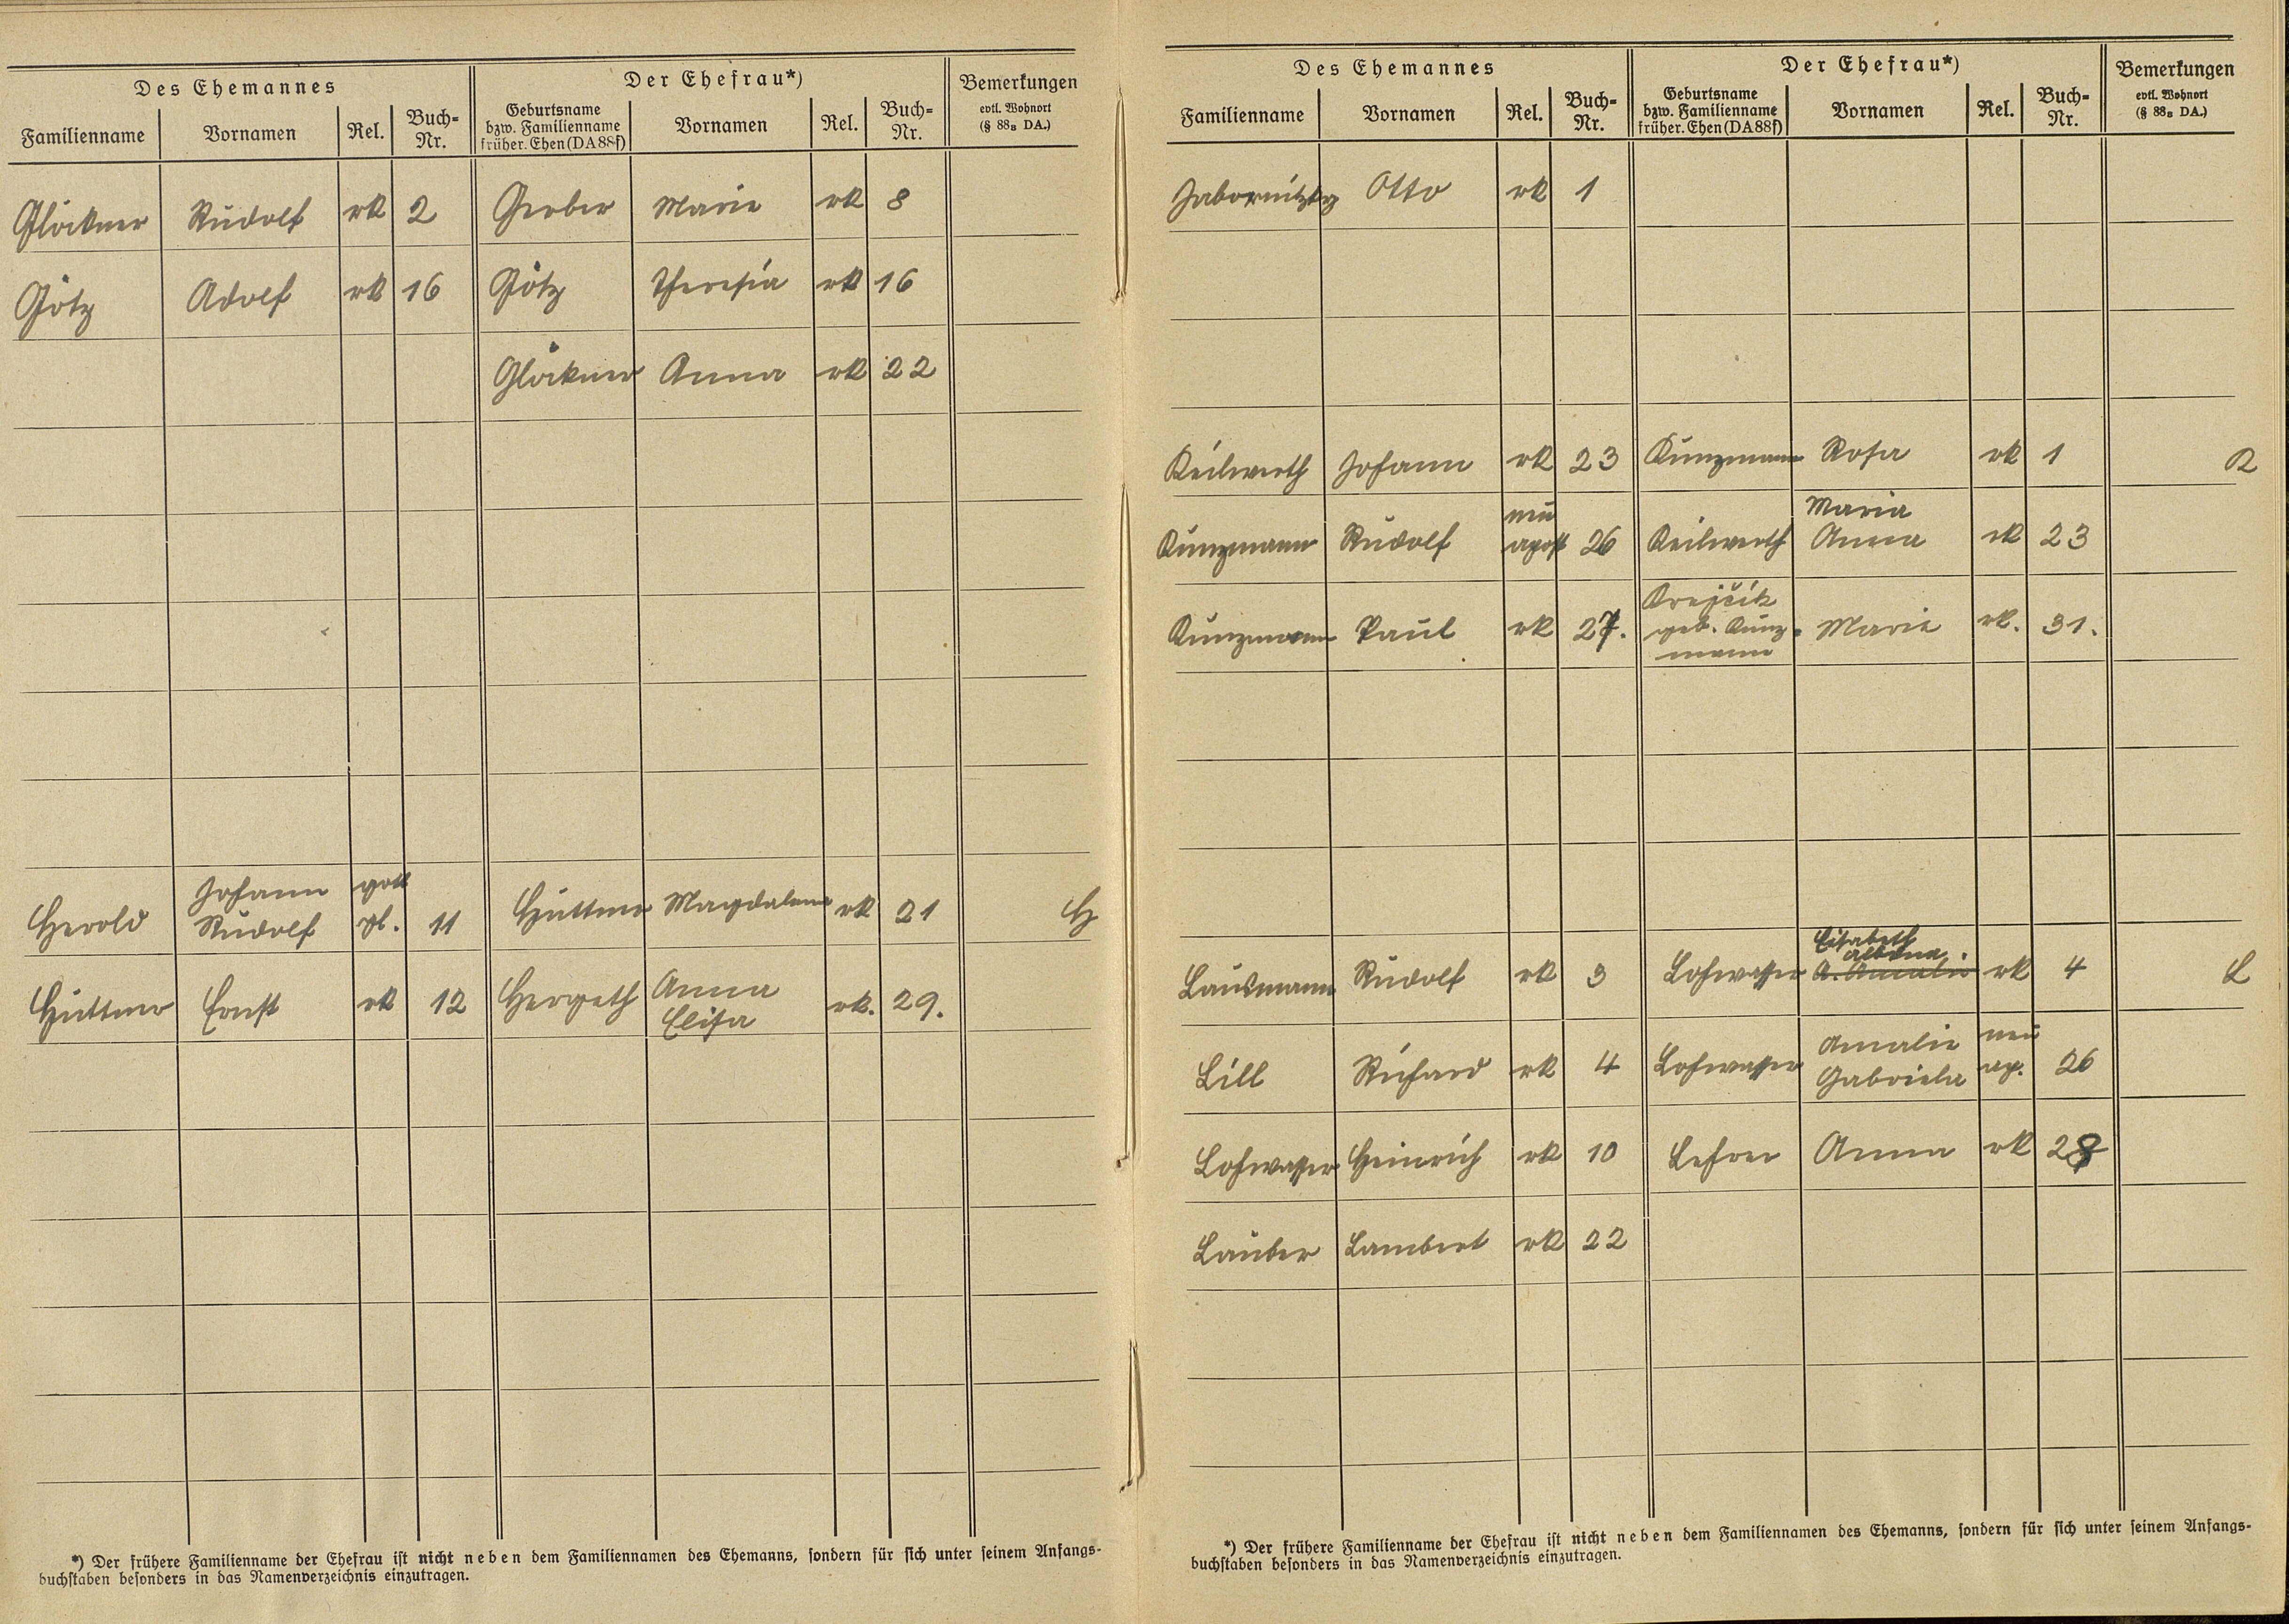 Des Ehemannes Der Ehefrau*) Bemerkungen
evtl. Wohnort
(§ 88B DA.)
Familienname Vornamen Rel. Buch=Nr. Geburtsname bzw. Familienname früher. Ehen (DA 88f) Vornamen Rel. Buch=Nr.
Glöckner Rudolf rk 2 Gerber Marie rk 8
Götz Adolf rk 16 Götz Theresia rk 16
Glöckner Anna rk 22
Herold Johann Rudolf gott gl. 11 Hüttner Magdalena rk 21 H
Hüttner Ernst rk 12 Hergeth Anna Elisa rk. 29.
*) Der frühere Familienname der Ehefrau ist nicht neben dem Familiennamen des Ehemanns, sondern für sich unter seinem Anfangs-
buchstaben besonders in das Namenverzeichnis einzutragen.
Des Ehemannes Der Ehefrau*) Bemerkungen
evtl. Wohnort
(§ 88B DA.)
Familienname Vornamen Rel. Buch=Nr. Geburtsname bzw. Familienname früher. Ehen (DA 88f) Vornamen Rel. Buch=Nr.
Jabornitzky Otto rk 1
Keilwerth Johann rk 23 Kunzmann Rosa rk 1 K
Kunzmann Rudolf neu apost 26 Keilwerth Maria Anna rk 23
Kunzmann Paul rk 27. Krejčik geb. Kunz-mann Marie rk. 31.
Lausmann Rudolf rk 3 Lohwasser Elisabeth Albina A. Amalie rk 4 L
Lill Richard rk 4 Lohwasser Amalie Gabriela neu ap. 26
Lohwasser Heinrich rk 10 Lehrer Anna rk 28
Lauber Lambert rk 22
*) Der frühere Familienname der Ehefrau ist nicht neben dem Familiennamen des Ehemanns, sondern für sich unter seinem Anfangs-
buchstaben besonders in das Namenverzeichnis einzutragen.